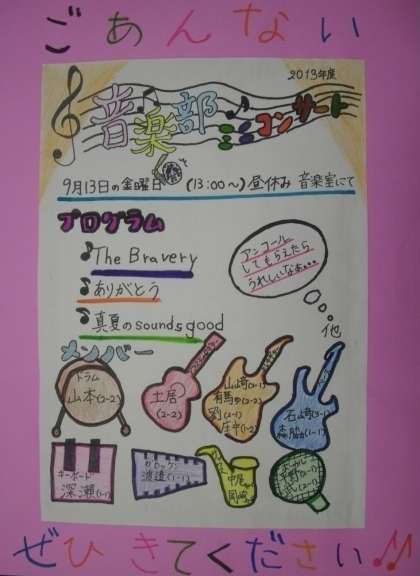 ごあんない
2013年度
音楽部
ミニコンサート
9月13日の金曜日 (13:00〜)昼休み 音楽室にて
プログラム
The Bravery
ありがとう
真夏のsounds good
アンコール
してもらえたら
うれしいなぁ...
他
メンバー
ドラム
山本(2-2)
土居
(2-2)
山崎(2-1)
有馬
劉(2-1)
庄や(2-2)
石崎(3-1)
森脇(1-1)
キーボード
深瀬(1-1)
カロック
渡道(1-1)
中尾
岡崎
ボーカル
ぜひきてください!